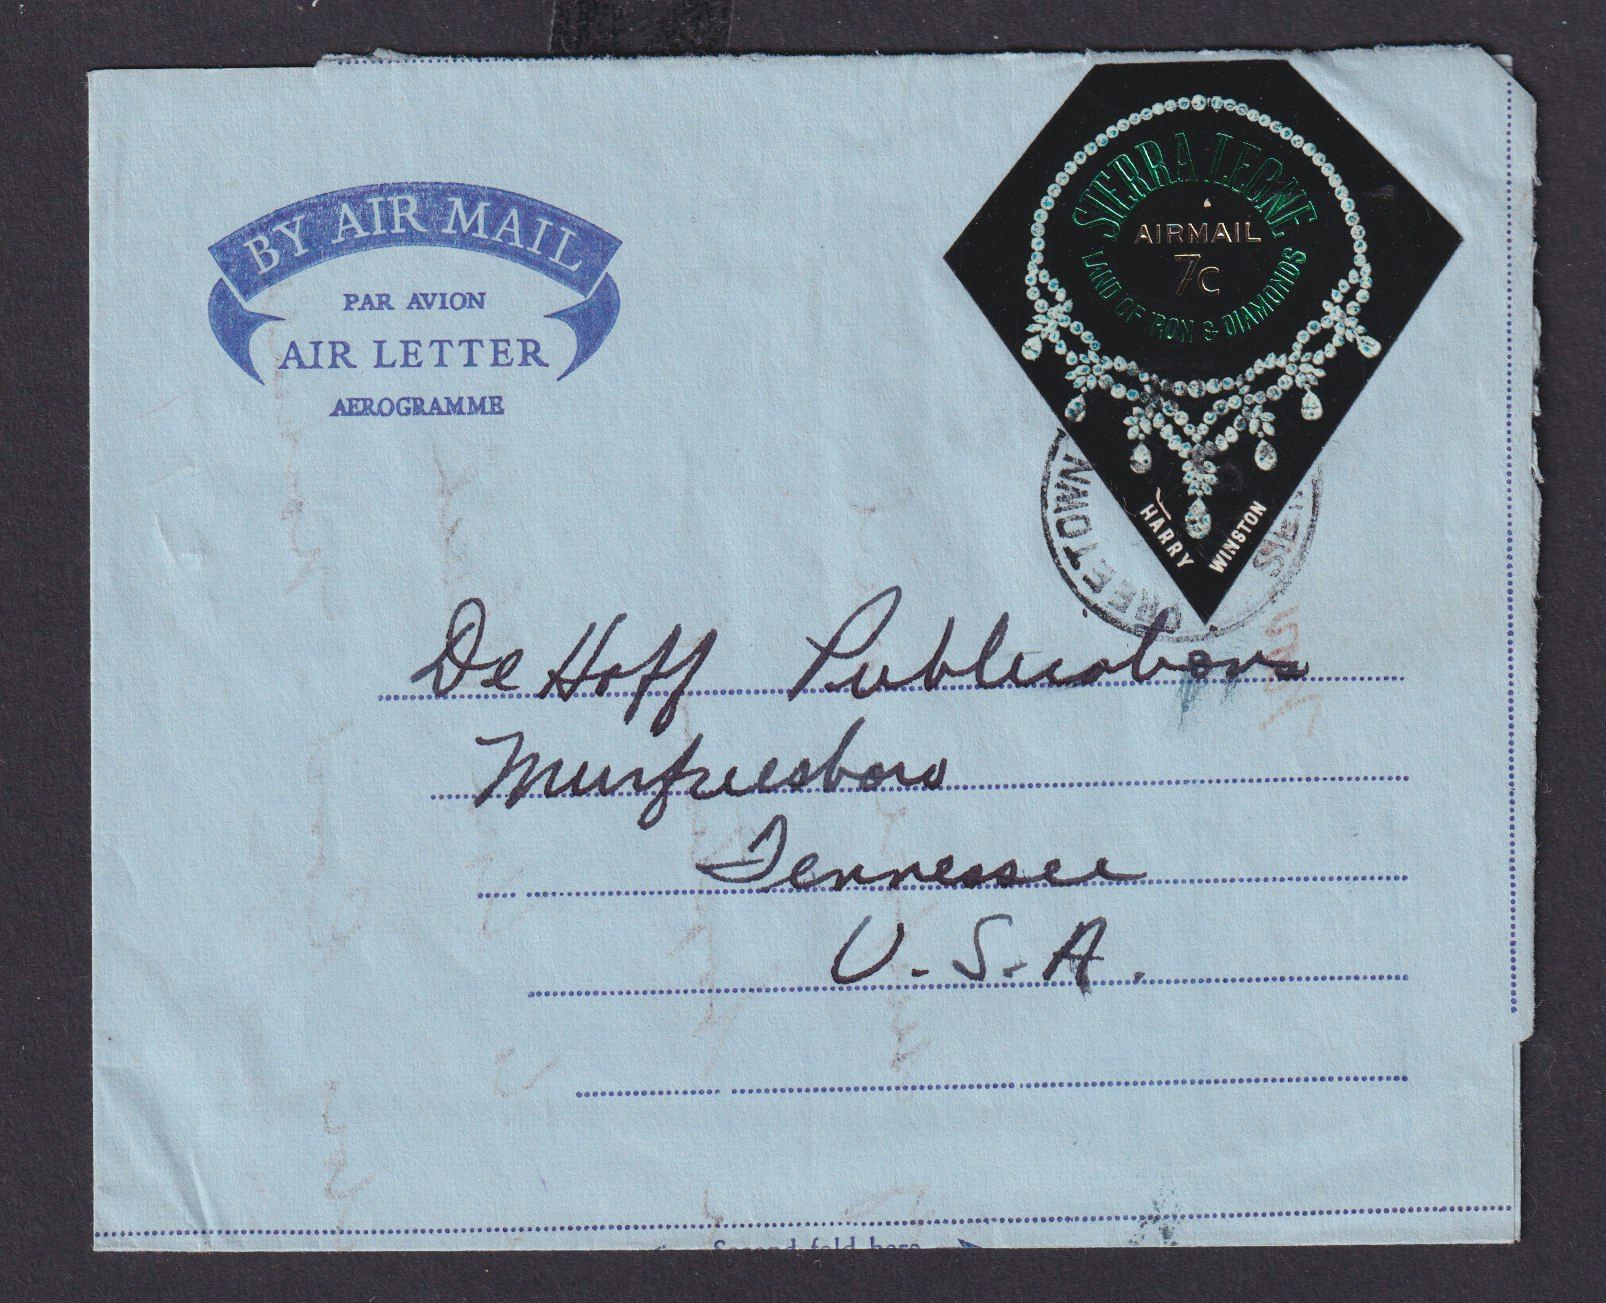 BY AIR MAIL
PAR AVION
AIR LETTER
AEROGRAMME
SIERRA LEONE
AIRMAIL
7c
LAND OF IRON & DIAMONDS
HARRY
WINSTON
De Hoff Publications
Murfreesboro
Tennessee
U.S.A.
Second fold here